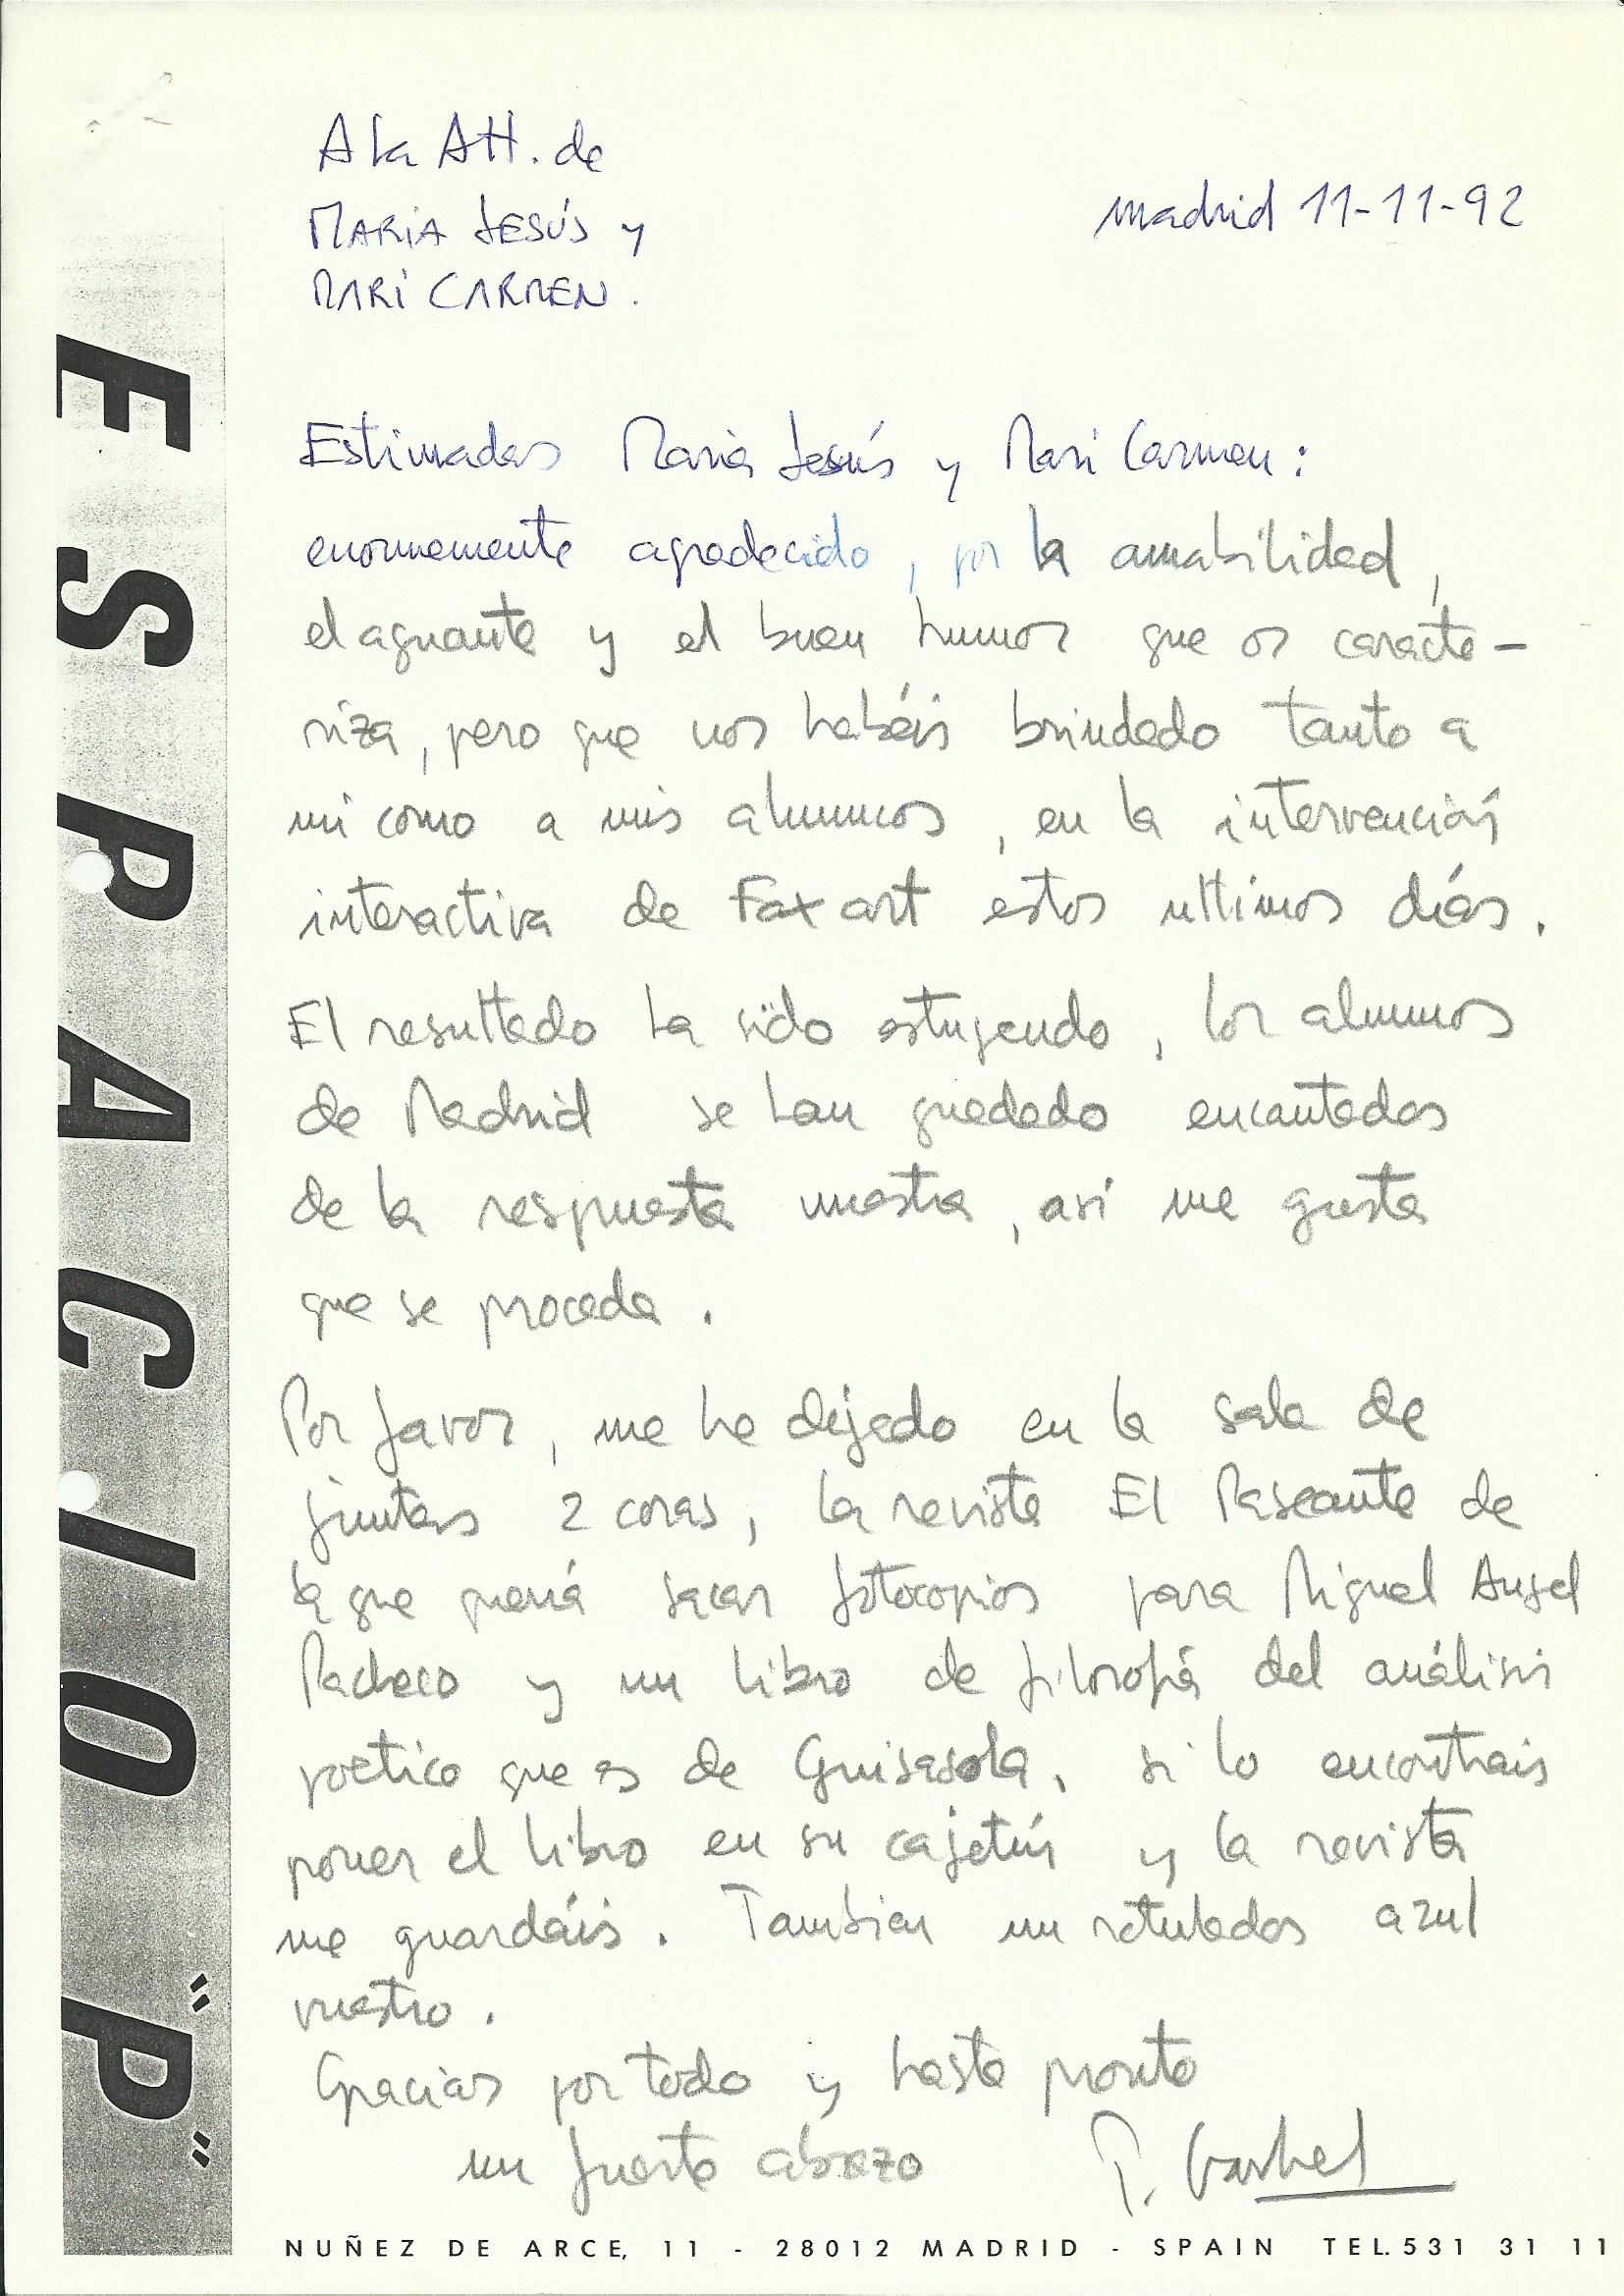 A la Att. de
MARIA JESÚS y
MARI CARMEN.
madrid 11-11-92
Estimadas Maria Jesús y Mari Carmen:
enormemente agradecido, por la amabilidad,
el aguante y el buen humor que os caracte-
riza, pero que nos habéis brindado tanto a
mi como a mis alumnos, en la intervención
interactiva de Fax art estos ultimos días.
El resultado ha sido estupendo, los alumnos
de Madrid se han quedado encantados
de la respuesta vuestra, asi me gusta
que se proceda.
Por favor, me he dejado en la sala de
juntas 2 cosas, la revista El Paseante de
la que quería sacar fotocopias para Miguel Angel
Pacheco y un libro de filosofía del análisis
poetico que es de Guisasola, si lo encontrais
poner el libro en su cajetín y la revista
me guardáis. Tambien un rotulador azul
vuestro.
Gracias por todo y hasta pronto
un fuerte abrazo
P. Garhel
ESPACIO "P"
NUÑEZ DE ARCE, 11 - 28012 MADRID - SPAIN TEL. 531 31 11